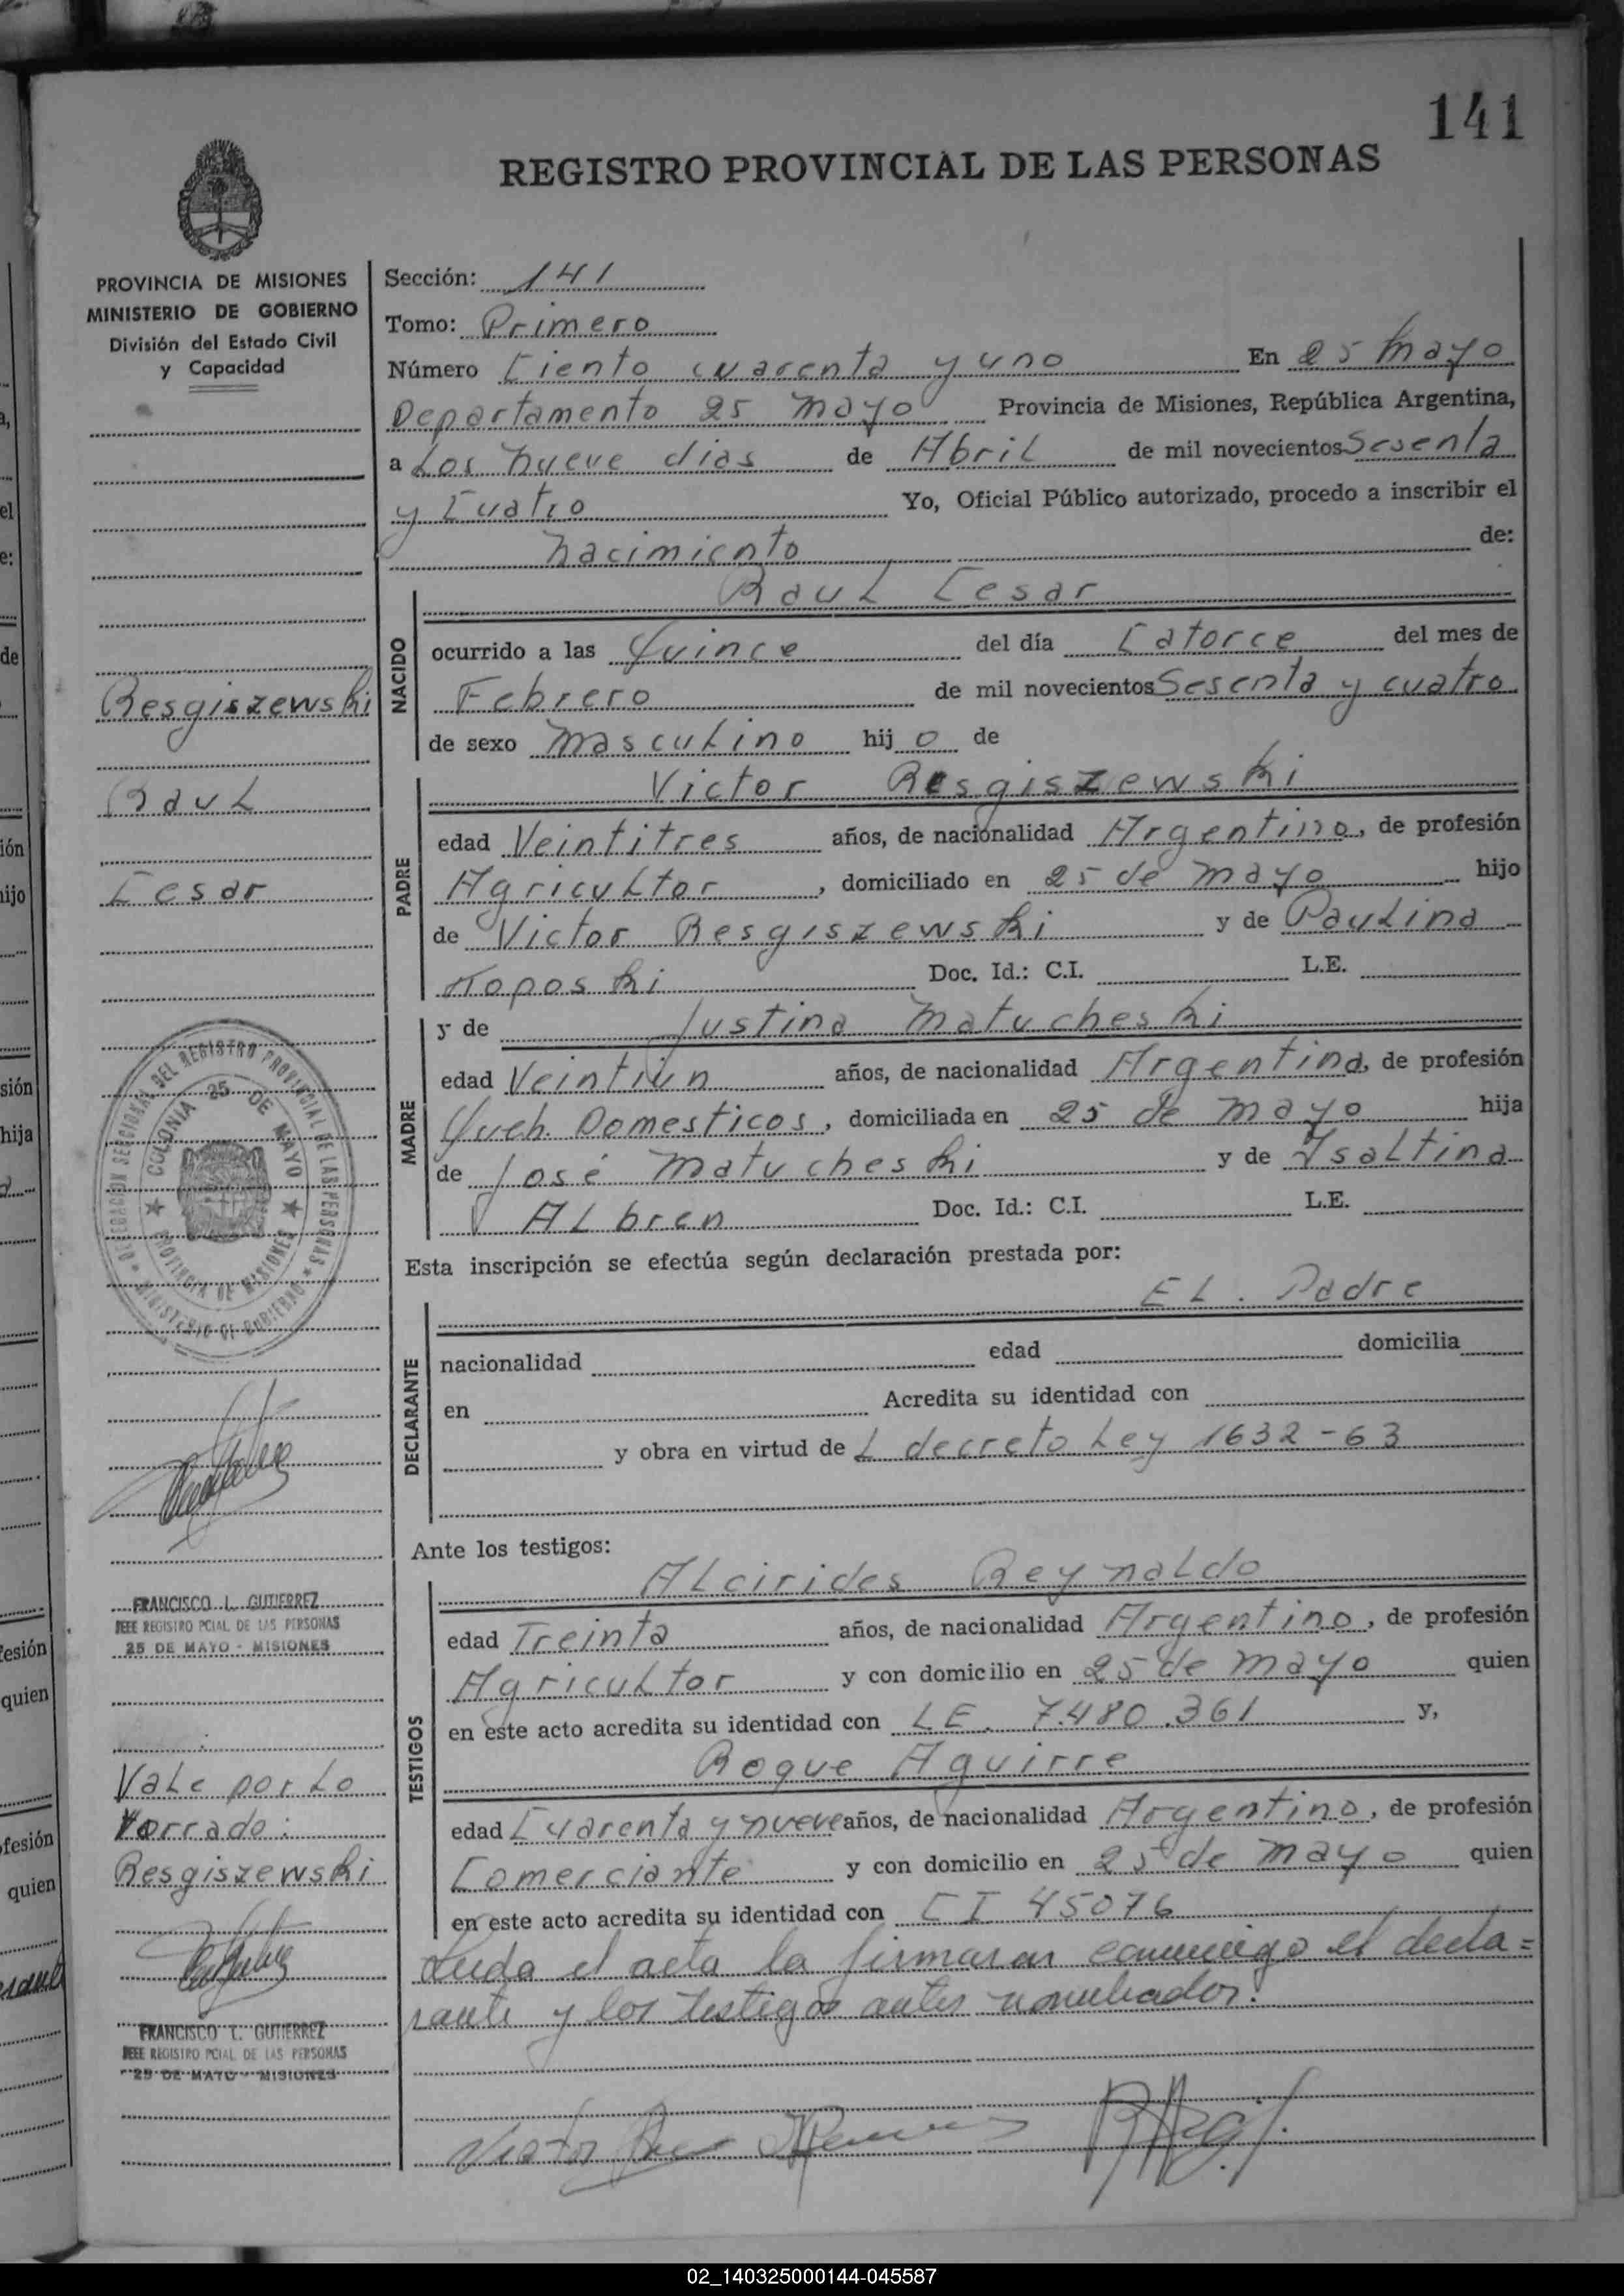 141
REGISTRO PROVINCIAL DE LAS PERSONAS
PROVINCIA DE MISIONES
MINISTERIO DE GOBIERNO
División del Estado Civil
y Capacidad
Resgiszewski
Raul
Cesar
DELEGACION SECCIONAL DEL REGISTRO PROVINCIAL DE LAS PERSONAS
MINISTERIO DE GOBIERNO
COLONIA 25 DE MAYO
PROVINCIA DE MISIONES
FRANCISCO L. GUTIERREZ
JEFE REGISTRO PCIAL DE LAS PERSONAS
25 DE MAYO - MISIONES
Vale por lo
Resgiszewski
FRANCISCO L. GUTIERREZ
JEFE REGISTRO PCIAL DE LAS PERSONAS
25 DE MAYO - MISIONES
Sección: 141
Tomo: Primero
Número Ciento cuarenta y uno En 25 Mayo
Departamento 25 Mayo Provincia de Misiones, República Argentina,
a Los nueve dias de Abril de mil novecientos Sesenta
y Cuatro Yo, Oficial Público autorizado, procedo a inscribir el
nacimiento de:
NACIDO
Raul Cesar
ocurrido a las Quince del día Catorce del mes de
Febrero de mil novecientos Sesenta y cuatro
de sexo Masculino hij o de
PADRE
Victor Resgiszewski
edad Veintitres años, de nacionalidad Argentino, de profesión
Agricultor, domiciliado en 25 de Mayo hijo
de Victor Resgiszewski y de Paulina
Koposki Doc. Id.: C.I. L.E.
MADRE
y de Justina Matucheski
edad Veintiun años, de nacionalidad Argentina, de profesión
Queh. Domesticos, domiciliada en 25 de Mayo hija
de José Matucheski y de Isaltina
Albren Doc. Id.: C.I. L.E.
Esta inscripción se efectúa según declaración prestada por:
DECLARANTE
El. Padre
nacionalidad edad domicilia
en Acredita su identidad con
y obra en virtud de L decreto Ley 1632-63
Ante los testigos:
TESTIGOS
Alcirides Reynaldo
edad Treinta años, de nacionalidad Argentino, de profesión
Agricultor y con domicilio en 25 de Mayo quien
en este acto acredita su identidad con LE. 7.480.361 y,
Roque Aguirre
edad Cuarenta y nueve años, de nacionalidad Argentino, de profesión
Comerciante y con domicilio en 25 de Mayo quien
en este acto acredita su identidad con CI 45076
Leida el acta la firmaran conmigo el decla=
rante y los testigos antes nombrados.
02_140325000144-045587